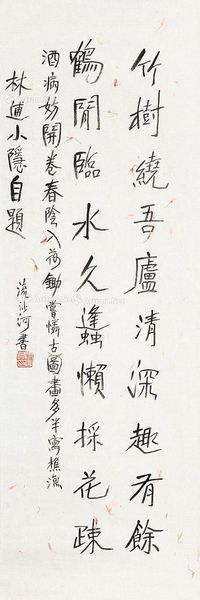 竹樹繞吾廬清深趣有餘
鶴閒臨水久蜂懶採花疎
酒病妨開卷春陰入荷鋤嘗憐古圖畫多半寫樵漁
林逋小隱自題
流沙河書